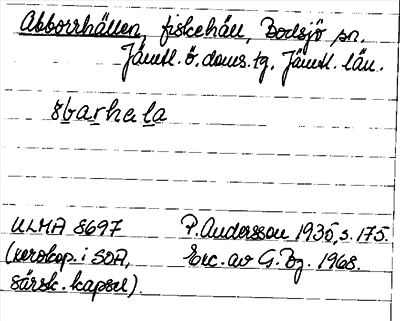 Abborrhällen, fiskehäll, Bodsjö sn.
Jämtl. ö. doms. tg. Jämtl. län.
åbarhęla
ULMA 8697 P. Andersson 1935, s. 175.
(xerokop. i SOA, Exc. av G. Bg. 1968.
särsk. kapsel).